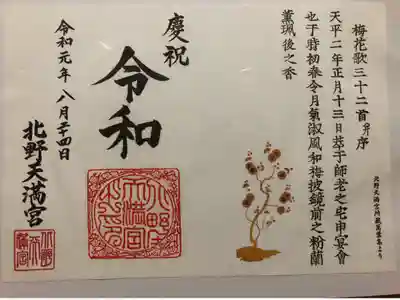 梅花歌三十二首并序
天平二年正月十三日萃于師老之宅申宴會
也于時初春令月氣淑風和梅披鏡前之粉蘭
薫珮後之香
北野天満宮所蔵萬葉集より
慶祝
令和
令和元年八月二十四日
北野天満宮